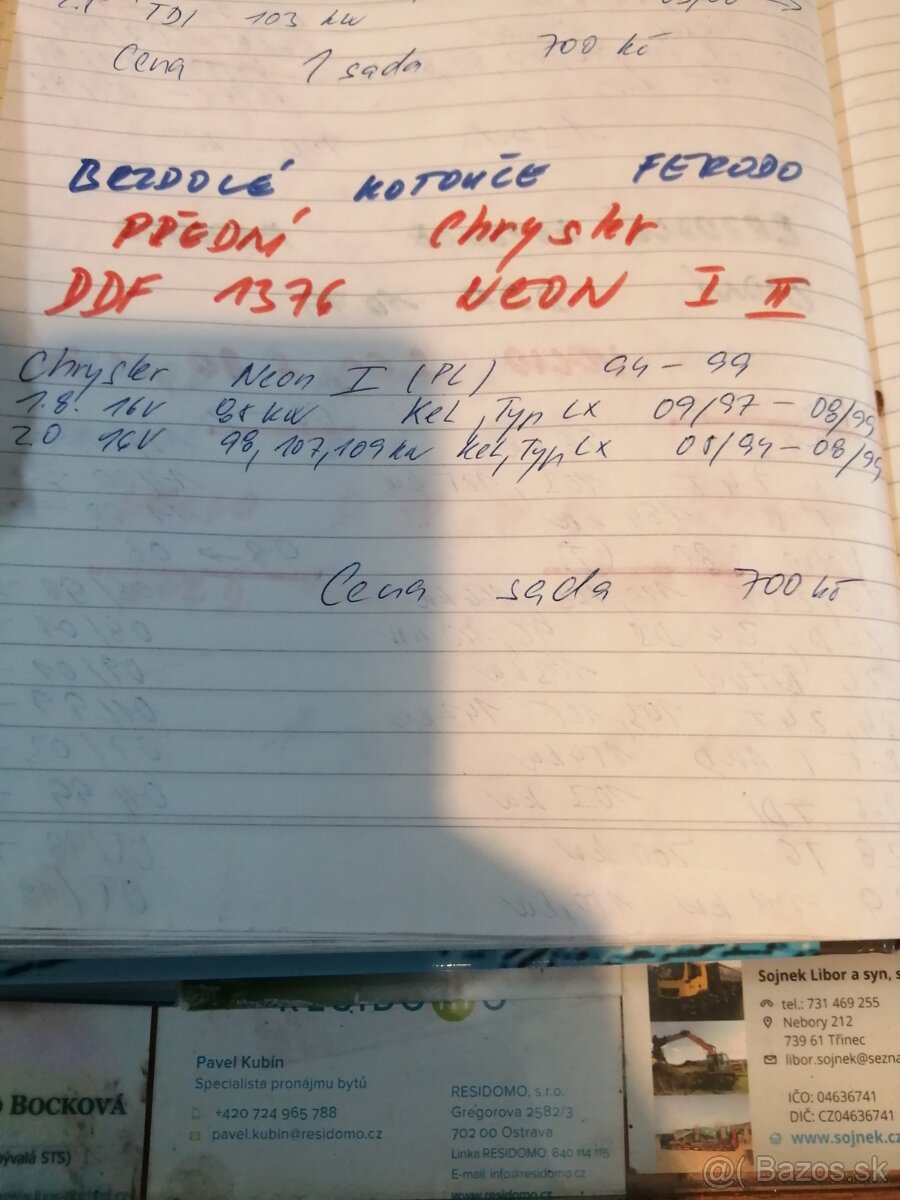 TDI 103 kw
Cena 1 sada 700 kč
BRZDOVÉ KOTOUČE FERODO
PŘEDNÍ Chrysler
DDF 1376 NEON I II
Chrysler Neon I (PL) 94 - 99
1.8. 16V 85 kw Kel, Typ LX 09/97 - 08/99
2.0 16V 98, 107, 109 kw Kel, Typ LX 05/94 - 08/99
Cena sada 700 kč
RESIDOMO
Pavel Kubín
Specialista pronájmu bytů
+420 724 965 788
pavel.kubin@residomo.cz
RESIDOMO, s.r.o.
Gregorova 2582/3
702 00 Ostrava
Linka RESIDOMO: 840 114 115
E-mail: info@residomo.cz
www.residomo.cz
BOCKOVÁ
bývalá STS)
Sojnek Libor a syn, s
tel.: 731 469 255
Nebory 212
739 61 Třinec
libor.sojnek@sezna
IČO: 04636741
DIČ: CZ04636741
www.sojnek.c
@ Bazos.sk